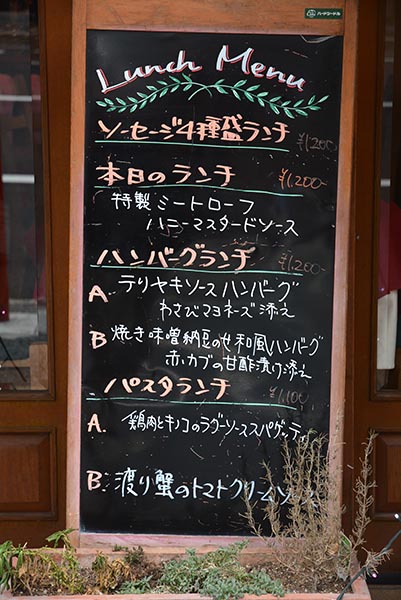 Lunch Menu
ソーセージ4種盛ランチ ¥1,200-
本日のランチ ¥1,200-
特製ミートローフ
ハニーマスタードソース
ハンバーグランチ ¥1,200-
A テリヤキソースハンバーグ
わさびマヨネーズ添え
B 焼き味噌納豆のせ和風ハンバーグ
赤カブの甘酢漬け添え
パスタランチ ¥1,100
A. 鶏肉とキノコのラグーソーススパゲッティ
B. 渡り蟹のトマトクリーム